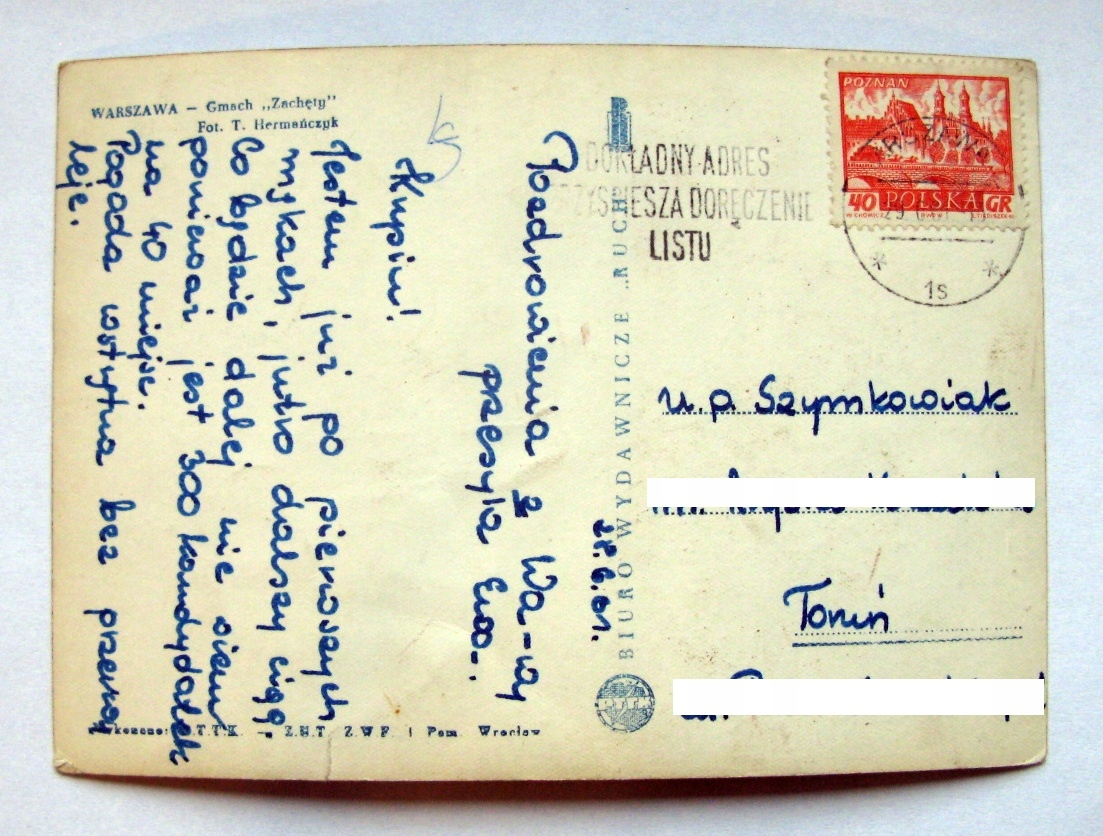 WARSZAWA — Gmach „Zachęty"
Fot. T. Hermańczyk
Pozdrowienia z Wa-wy
przesyła Ewa.
Krupiu!
Jestem już po pierwszych
mykach, jutro dalszy ciąg,
Co będzie dalej nie wiem
ponieważ jest 300 kandydatek
na 40 miejsc.
Pogoda wstrętna bez przerwy
leje.
28.6.61.
BIURO WYDAWNICZE „RUCH"
T.T.K. — Z.U.T. Z.W.F. i Pom. Wrocław
PTTK
DOKŁADNY ADRES
PRZYSPIESZA DORĘCZENIE
LISTU
POZNAŃ
40 POLSKA GR
1s
W.P. Szymkowiak
Toruń